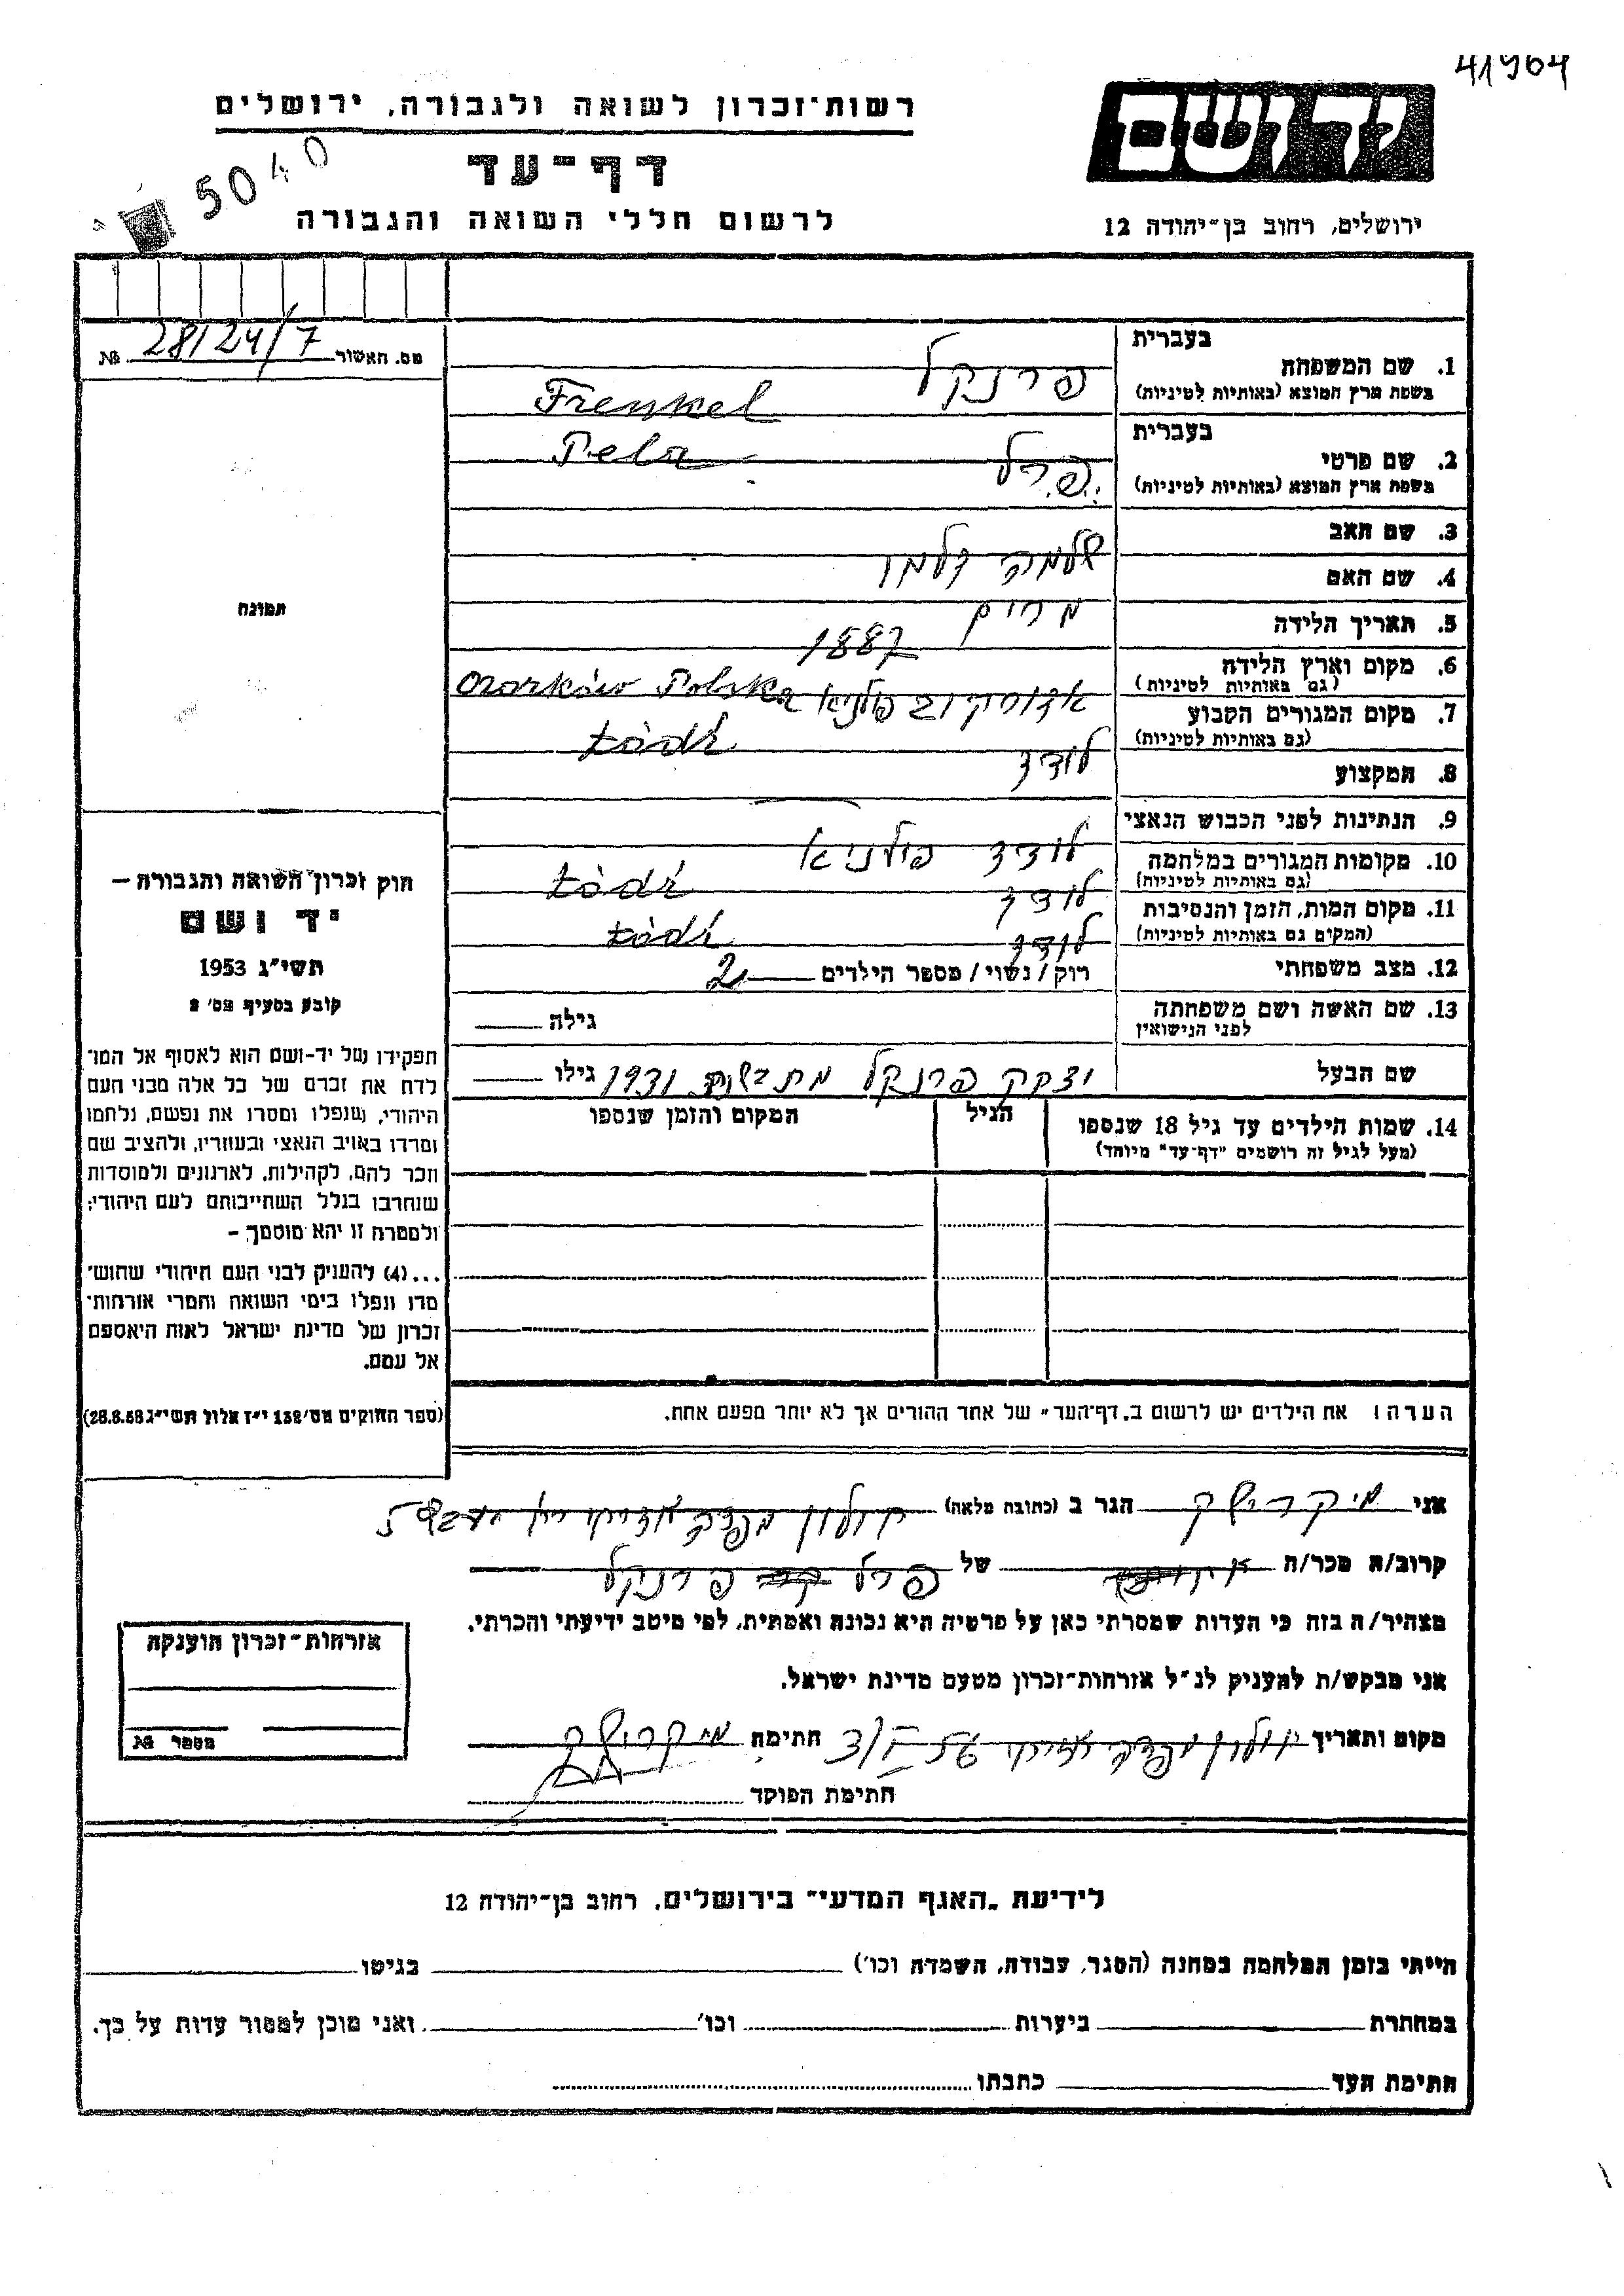 41904
רשות־זכרון לשואה ולגבורה, ירושלים
יד ושם
5040
דף־עד
לרשום חללי השואה והגבורה
ירושלים, רחוב בן־יהודה 12
מס. האשור 28/24/7 №
תמונה
בעברית
1. שם המשפחה פרנקל
בשפת ארץ המוצא (באותיות לטיניות) Frenkel
בעברית
2. שם פרטי פרל
בשפת ארץ המוצא (באותיות לטיניות) Pela
3. שם האב שלמה זלמן
4. שם האם מרים
5. תאריך הלידה 1887
6. מקום וארץ הלידה
(גם באותיות לטיניות) פולניא Ozorków Polska
7. מקום המגורים הקבוע
(גם באותיות לטיניות) לודז Łódź
8. המקצוע
9. הנתינות לפני הכבוש הנאצי לודז פולניא
10. מקומות המגורים במלחמה
(גם באותיות לטיניות) לודז Łódź
11. מקום המות, הזמן והנסיבות
(המקום גם באותיות לטיניות) לודז Łódź
12. מצב משפחתי רוק / נשוי / מספר הילדים 2
13. שם האשה ושם משפחתה
לפני הנישואין גילה
שם הבעל יצחק פרנקל 1931 גילו
14. שמות הילדים עד גיל 18 שנספו הגיל המקום והזמן שנספו
(מעל לגיל זה רושמים "דף־עד" מיוחד)
הערה: את הילדים יש לרשום ב„דף־העד" של אחד ההורים אך לא יותר מפעם אחת.
חוק זכרון השואה והגבורה —
יד ושם
תשי"ג 1953
קובע בסעיף מס' 2
תפקידו של יד-ושם הוא לאסוף אל המו־
לדת את זכרם של כל אלה מבני העם
היהודי, שנפלו ומסרו את נפשם, נלחמו
ומרדו באויב הנאצי ובעוזריו, ולהציב שם
וזכר להם, לקהילות, לארגונים ולמוסדות
שנחרבו בגלל השתייכותם לעם היהודי;
ולמטרה זו יהא מוסמך —
...(4) להעניק לבני העם היהודי שהוש־
מדו ונפלו בימי השואה והמרי אזרחות־
זכרון של מדינת ישראל לאות היאספם
אל עמם.
(ספר החוקים מס' 132 י"ז אלול תשי"ג 28.8.53)
אני הגר ב (כתובת מלאה) חולון
קרוב/ה מכר/ה של פרל פרנקל
מצהיר/ה בזה כי העדות שמסרתי כאן על פרטיה היא נכונה ואמתית, לפי מיטב ידיעתי והכרתי.
אני מבקש/ת להעניק לנ"ל אזרחות־זכרון מטעם מדינת ישראל.
מקום ותאריך חולון 56 חתימה
חתימת הפוקד
אזרחות־זכרון הוענקה
מספר №
לידיעת „האגף המדעי" בירושלים, רחוב בן־יהודה 12
הייתי בזמן המלחמה במחנה (הסגר, עבודה, השמדה וכו') בגיטו
במחתרת ביערות וכו' ואני מוכן למסור עדות על כך.
חתימת העד כתבתו